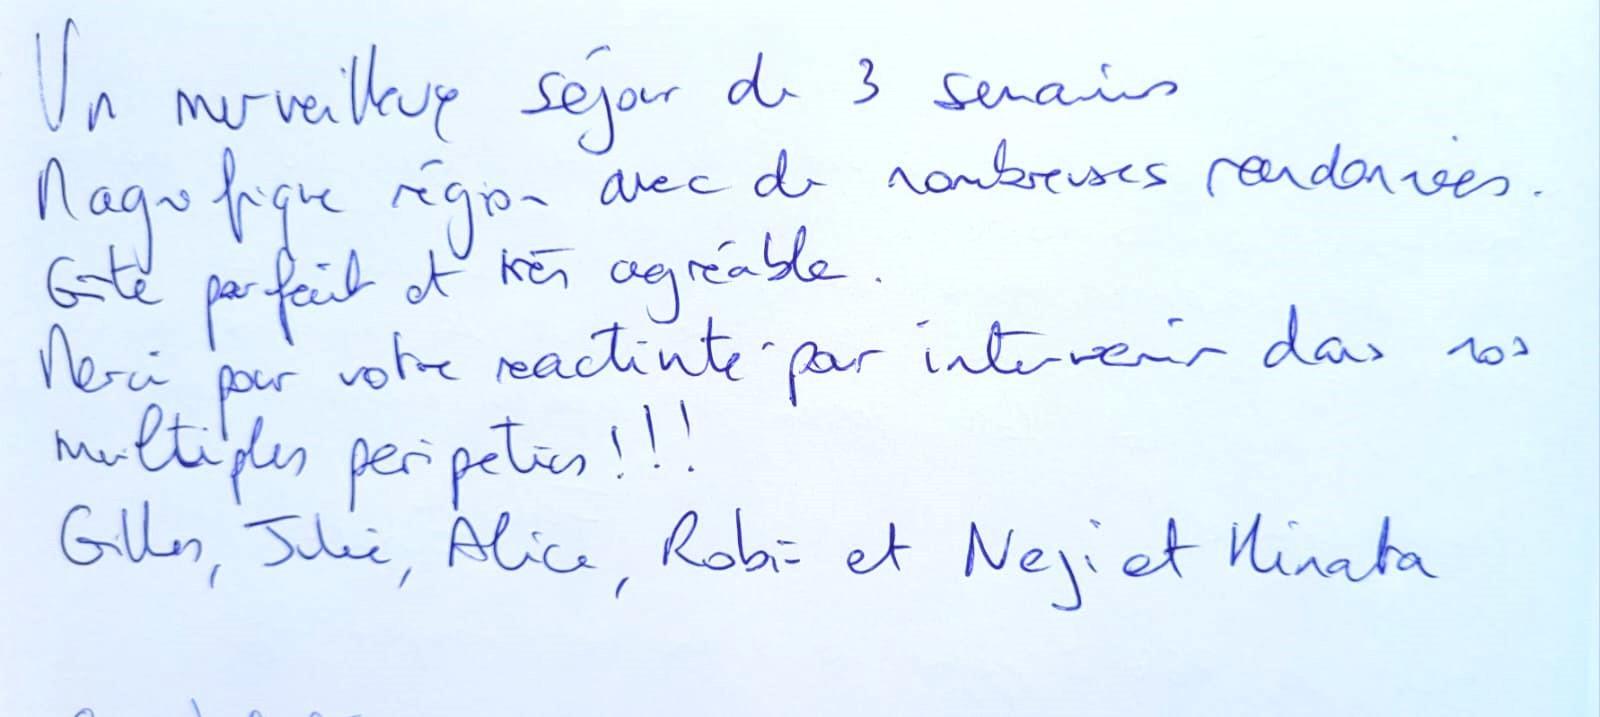 Un merveilleux séjour de 3 semaines
Magnifique région avec de nombreuses randonnées.
Gîte parfait et très agréable.
Merci pour votre reactivité pour intervenir dans nos
multiples peripeties !!!
Gilles, Julie, Alice, Robin et Neji et Hinata